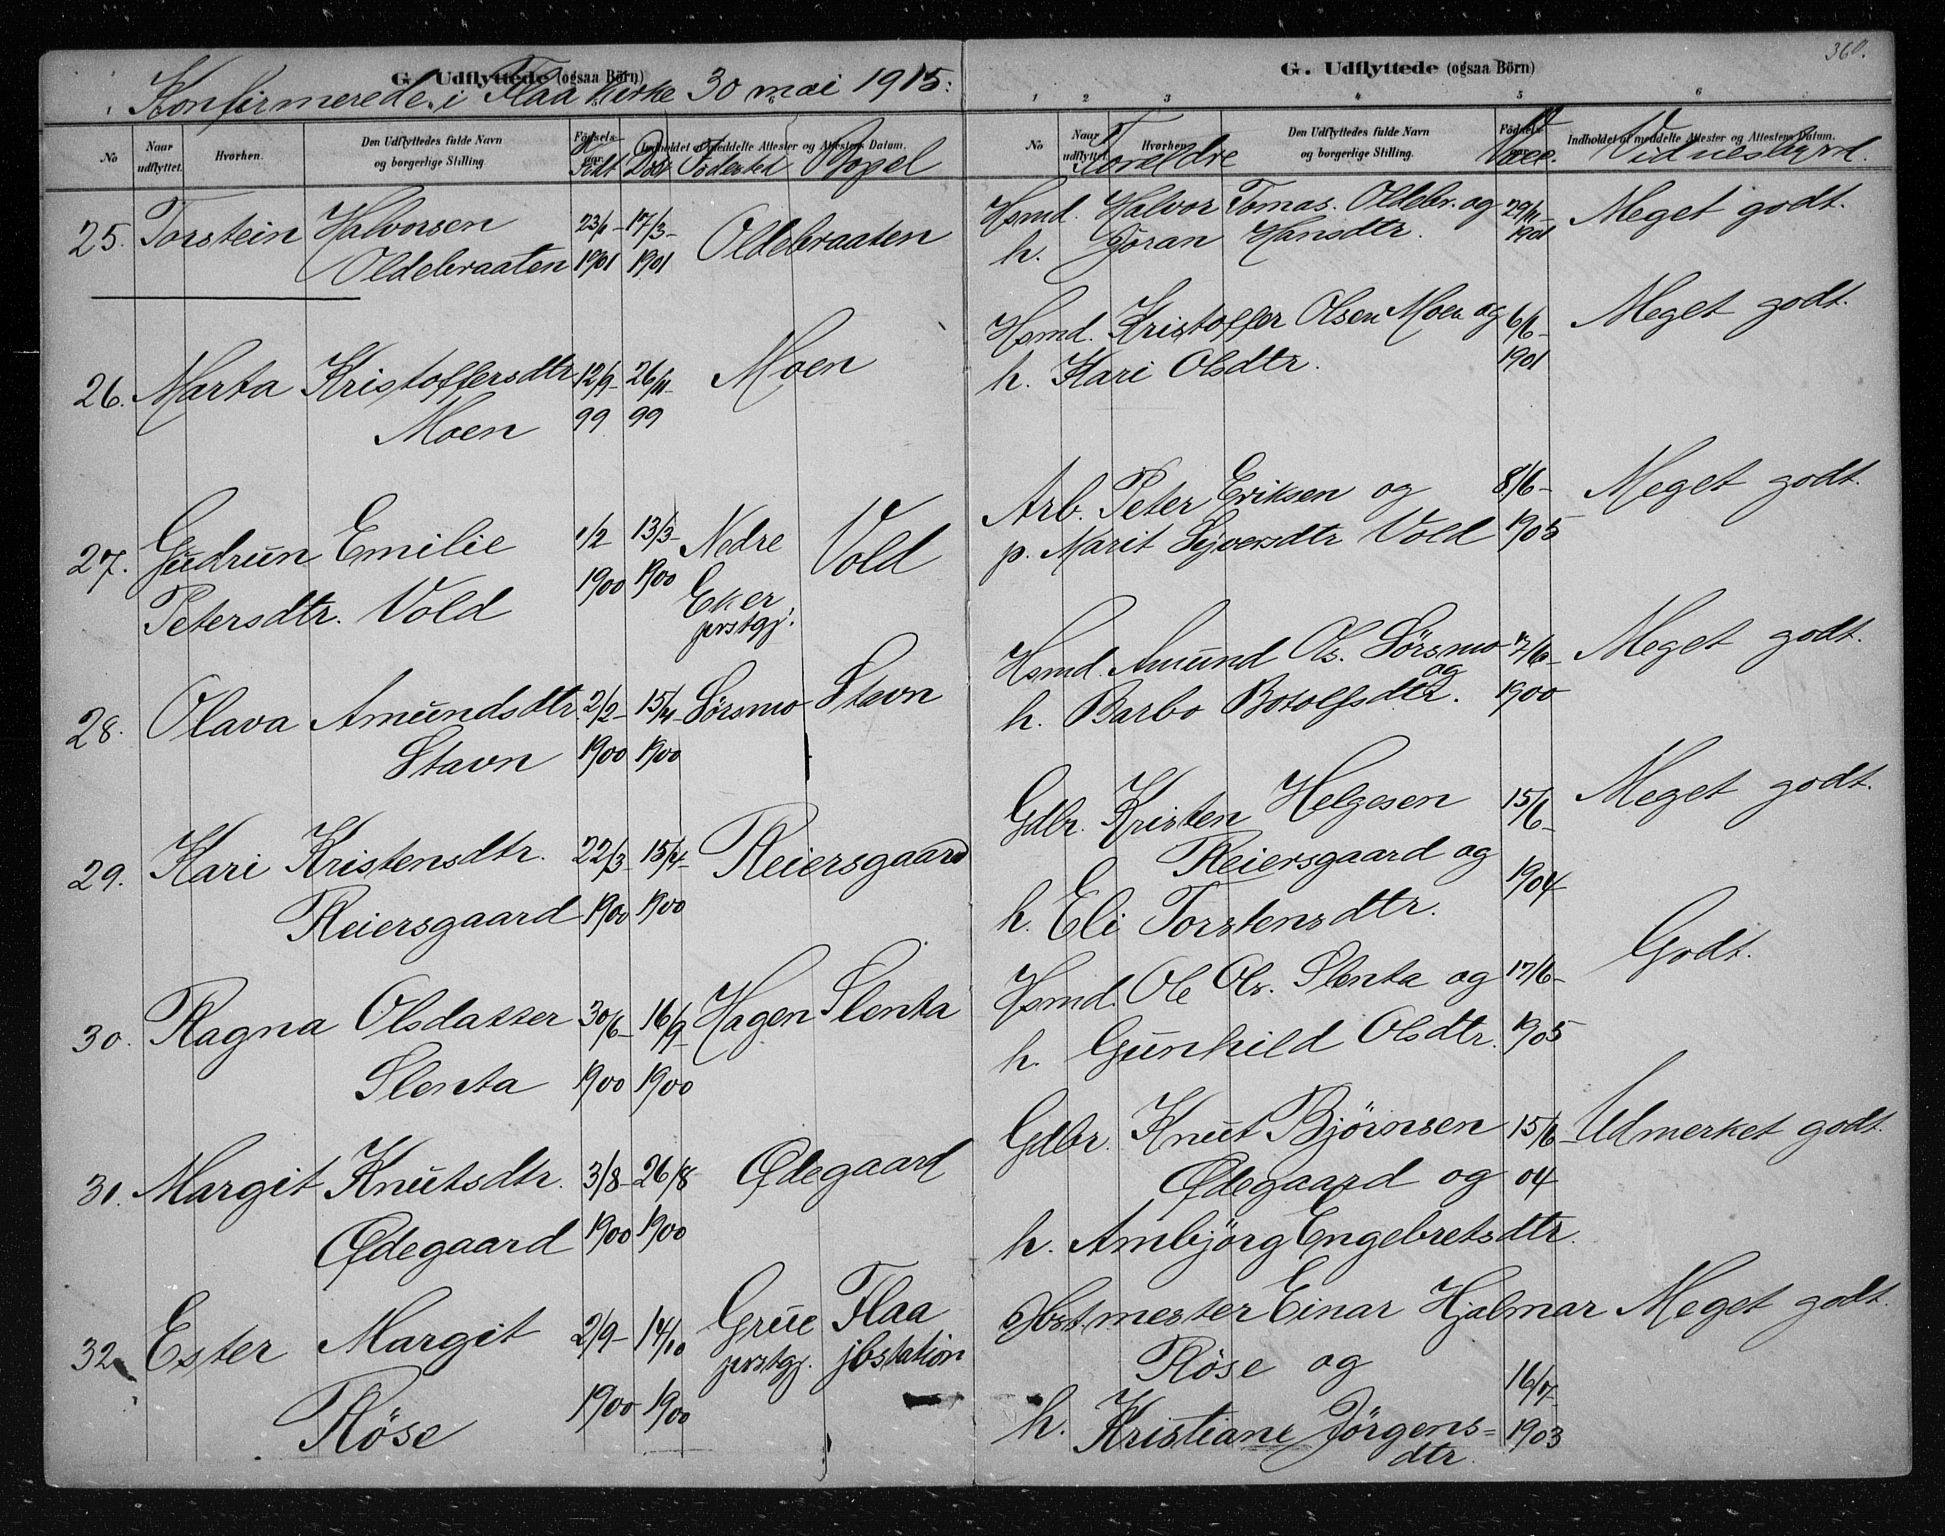 360.
G. Udflyttede (ogsaa Börn)
Konfirmerede i Flaa kirke 30 mai 1915.
No
Naar udflyttet.
Hvorhen.
Den Udflyttedes fulde Navn og borgerlige Stilling.
Indholdet af meddelte Attester og Attestens Datum.
Födt Döbt Födested Bopel
25. Torstein Halvorsen 23/1- 17/3- Oldebraaten
Oldebraaten 1901 1901
26. Marta Kristoffersdtr 12/9- 26/11- Moen
Moen 99 99
27. Gudrun Emilie 1/2 13/3- Nedre Vold
Petersdtr. Vold 1900 1900 Eker
prstgj.
28. Olava Amundsdtr. 2/2- 15/4- Sørsmo Stavn
Stavn 1900 1900
29. Kari Kristensdtr. 22/3- 15/4- Reiersgaard
Reiersgaard 1900 1900
30. Ragna Olsdatter 30/6- 16/9- Hagen Slenta
Slenta 1900 1900
31. Margit Knutsdtr. 3/8- 26/8 Ødegaard
Ødegaard 1900 1900
32. Ester Margit 2/9- 14/10 Grue Flaa
prstgj. jbstation
Röse 1900 1900
G. Udflyttede (ogsaa Börn)
1 2 3 4 5 6
No
Naar udflyttet.
Hvorhen.
Den Udflyttedes fulde Navn og borgerlige Stilling.
Födsels-
Indholdet af meddelte Attester og Attestens Datum.
Foreldre Vacc. Vidnesbyrd.
Hsmd. Halvor Tomas. Oldebr. og 29/11- Meget godt.
h. Joran Hansdtr. 1901
Hsmd. Kristoffer Olsen Moen og 6/6- Meget godt.
h. Kari Olsdtr. 1901
Arb. Peter Eriksen og 8/6- Meget godt.
p. Marit Syversdtr Vold 1905
Hsmd. Amund Ols. Sørsmo og Meget godt.
h. Barbo Botolfsdtr. 1900
Gdbr. Kristen Helgesen 15/6- Meget godt.
Reiersgaard og
h. Eli Torstensdtr. 1904
Hsmd. Ole Ols. Slenta og 17/6- Godt.
h. Gunhild Olsdtr. 1905
Gdbr. Knut Bjørnsen 15/6- Udmerket godt.
Ødegaard og 04
h. Ambjörg Engebretsdtr.
Einar Hjalmar Meget godt.
Röse og 16/7-
h. Kristiane Jörgens= 1903
dtr.